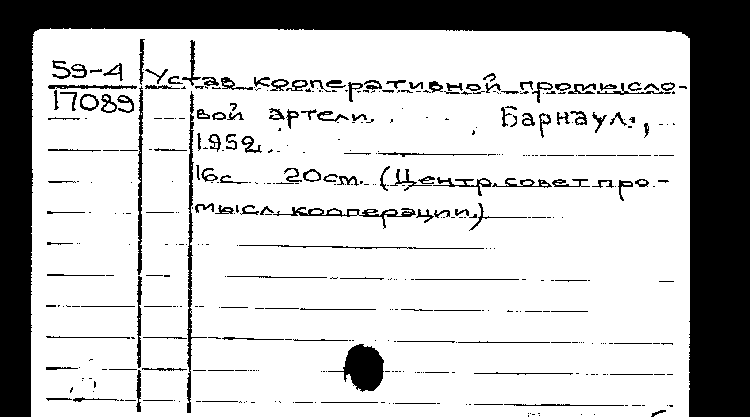 59-4 Устав кооперативной промысло-
17089 вой артели. Барнаул.,
1952.
16с 20см. (Центр. совет про-
мысл. кооперации.)